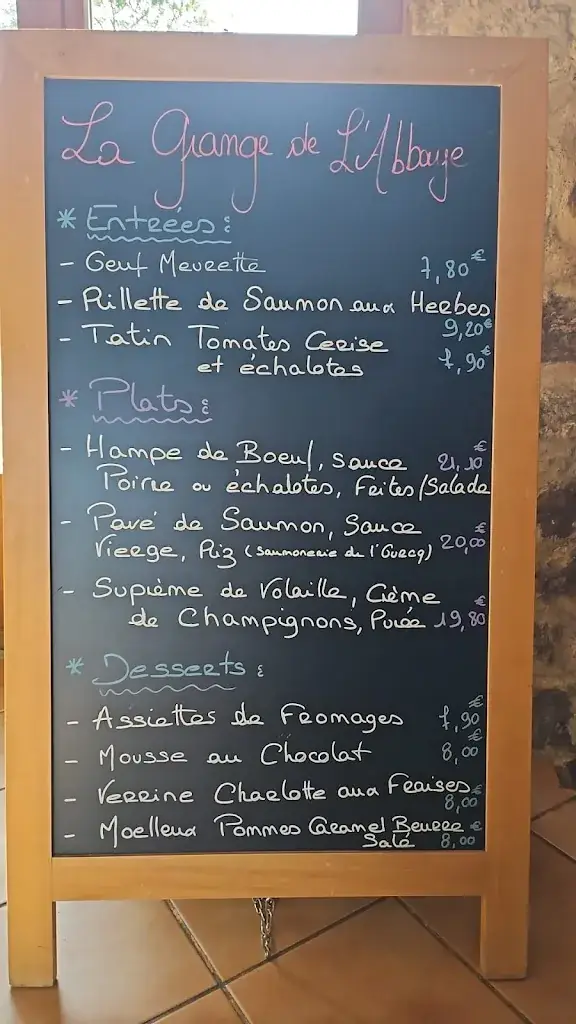 La Grange de L'Abbaye
* Entrées :
- Oeuf Meurette 7,80€
- Rillette de Saumon aux Herbes
9,20€
- Tatin Tomates Cerise
et échalotes 7,90€
* Plats :
- Hampe de Boeuf, Sauce 21,10€
Poivre ou échalotes, Frites/Salade
- Pavé de Saumon, Sauce
Vierge, Riz (Saumonerie de l'Ourcq) 20,00€
- Suprème de Volaille, Crème
de Champignons, Purée 19,80€
* Desserts :
- Assiettes de Fromages 7,90€
- Mousse au Chocolat 8,00€
- Verrine Charlotte aux Fraises
8,00€
- Moelleux Pommes Caramel Beurre
Salé 8,00€